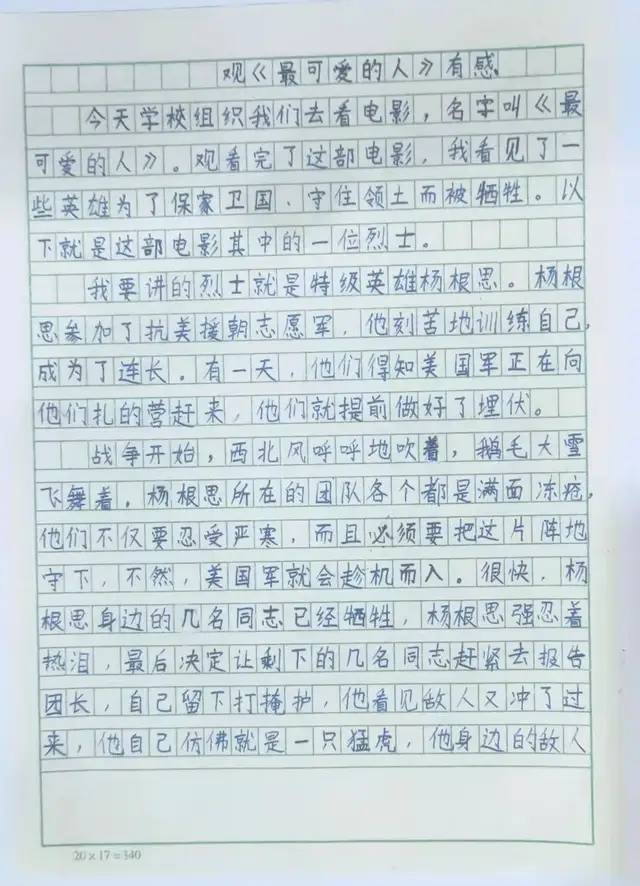 观《最可爱的人》有感
今天学校组织我们去看电影，名字叫《最
可爱的人》。观看完了这部电影，我看见了一
些英雄为了保家卫国、守住领土而被牺牲。以
下就是这部电影其中的一位烈士。
我要讲的烈士就是特级英雄杨根思。杨根
思参加了抗美援朝志愿军，他刻苦地训练自己，
成为了连长。有一天，他们得知美国军正在向
他们扎的营赶来，他们就提前做好了埋伏。
战争开始，西北风呼呼地吹着，鹅毛大雪
飞舞着，杨根思所在的团队各个都是满面冻疮，
他们不仅要忍受严寒，而且必须要把这片阵地
守下，不然，美国军就会趁机而入。很快，杨
根思身边的几名同志已经牺牲，杨根思强忍着
热泪，最后决定让剩下的几名同志赶紧去报告
团长，自己留下打掩护，他看见敌人又冲了过
来，他自己仿佛就是一只猛虎，他身边的敌人
20×17=340